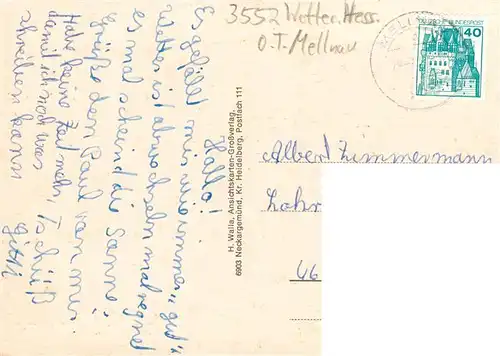 3552 Wetter, Hess.
O.T. Mellnau
DEUTSCHE BUNDESPOST
40
Hallo!
Es gefällt mir wie immer „gut“
Wetter ist abwechseln mal regnet
es mal scheind die Sonne.
Grüße dem Paul van mir
Habe keine Zeit mehr,
damit ich noch was
schreiben kann
Tschüß
Gitti
H. Walla, Ansichtskarten-Großverlag,
6903 Neckargemünd, Kr. Heidelberg, Postfach 111
Albert Zimmermann
Lahr
46